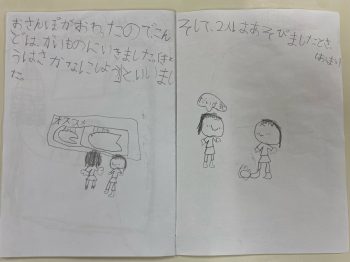 おさんぽがおわったのでこん
どは、かいものにいきました。はと
うはさかなにしようといいまし
た。
オススメ
そして、2人はあそびましたとさ。
(おしまい)